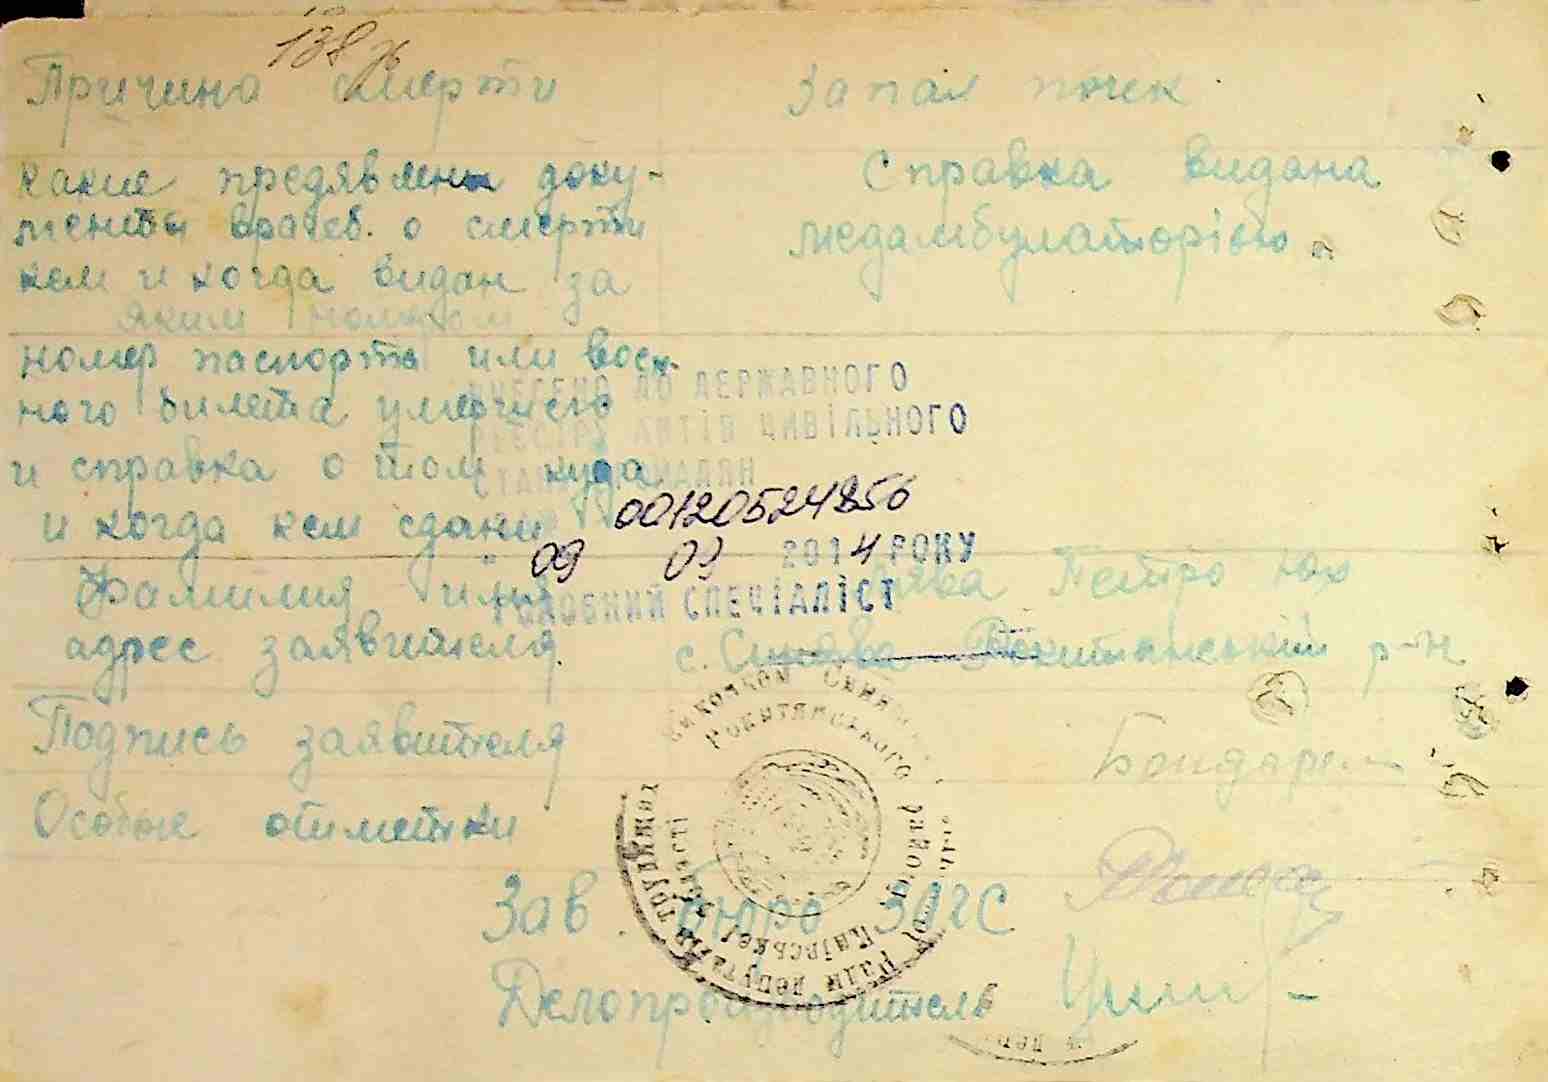 138
Причина смерти Запал почек
какие предявлени доку-
менты врачеб. о смерти
кем и когда видан за
яким номером
Справка видана
медамбулаторією
номер паспорта или воен-
ного билета умершего
и справка о том куда
и когда кем сдани
ВНЕСЕНО ДО ДЕРЖАВНОГО
РЕЄСТРУ АКТІВ ЦИВІЛЬНОГО
СТАНУ ГРОМАДЯН
00120524856
09 09 2014 РОКУ
ГОЛОВНИЙ СПЕЦІАЛІСТ
Фамилия имя Петро
адрес заявителя с. Синява Рокитянський р-н
Подпись заявителя
Особые отметки
Зав. бюро ЗАГС
Делопроизводитель
Виконком
Рокитянського району
Київської області
Ради депутатів трудящих